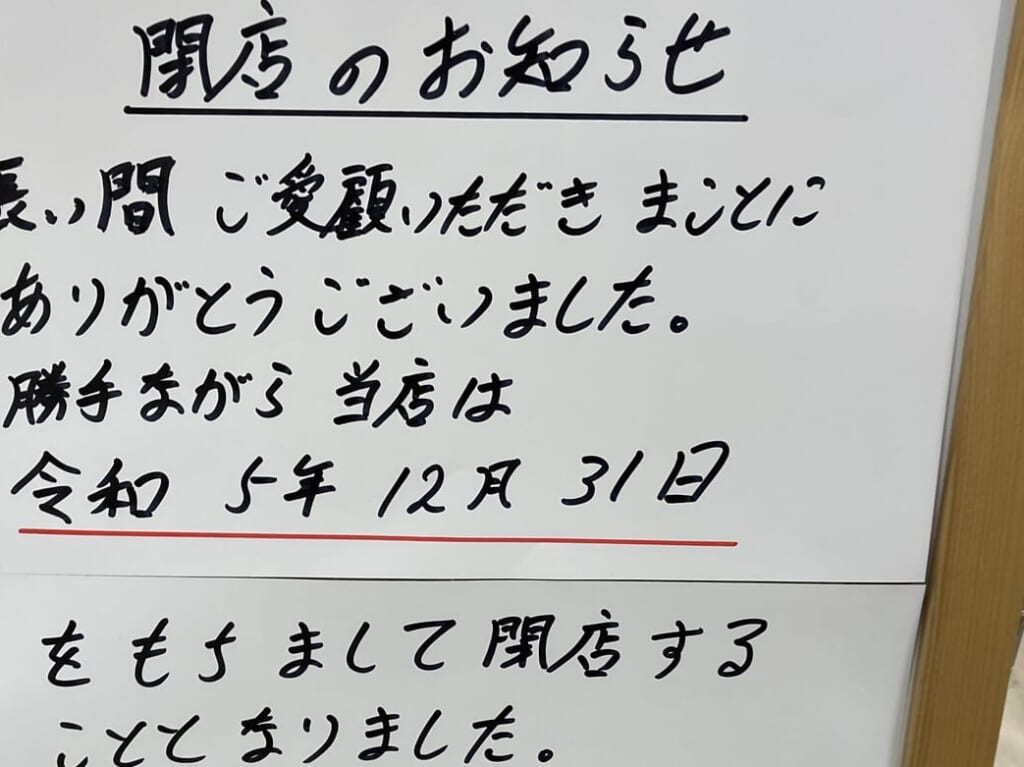 閉店のお知らせ
長い間 ご愛顧いただき まことに
ありがとうございました。
勝手ながら 当店は
令和 5年 12月 31日
をもちまして閉店する
こととなりました。